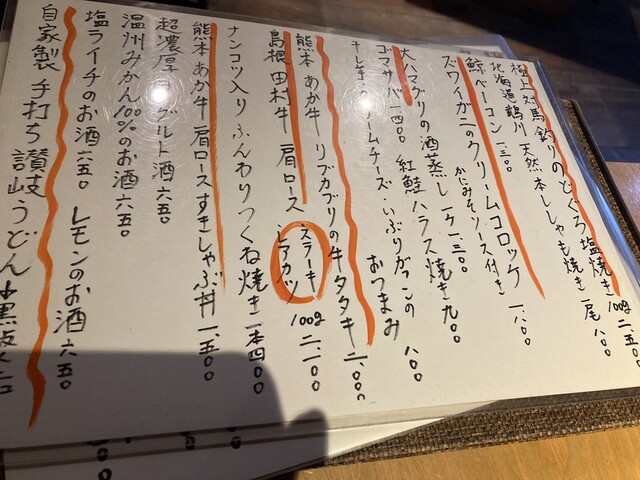 極上 対馬 釣りのどぐろ 塩焼き 100g 二.五〇〇
北海道 鵡川 天然 本ししゃも焼き 一尾 八〇〇
鯨ベーコン 一三〇〇
ズワイガニのクリームコロッケ 一八〇〇
かにみそソース付き
大ハマグリの酒蒸し 一ケ 一三〇〇
ゴマサバ 一四〇〇 紅鮭ハラス焼き 九〇〇
クリームチーズ・いぶりがっこの おつまみ 八〇〇
熊本 あか牛 リブカブリの牛タタキ 二.〇〇〇
島根 田村牛 肩ロース ステーキ 100g 二.一〇〇
ナンコツ入り ふんわりつくね焼き 一本 四〇〇
熊本 あか牛 肩ロースすきしゃぶ丼 一.五〇〇
超濃厚 ヨーグルト酒 六五〇
温州みかん100%のお酒 六五〇
塩ライチのお酒 六五〇 レモンのお酒 六五〇
自家製 手打ち 讃岐うどん